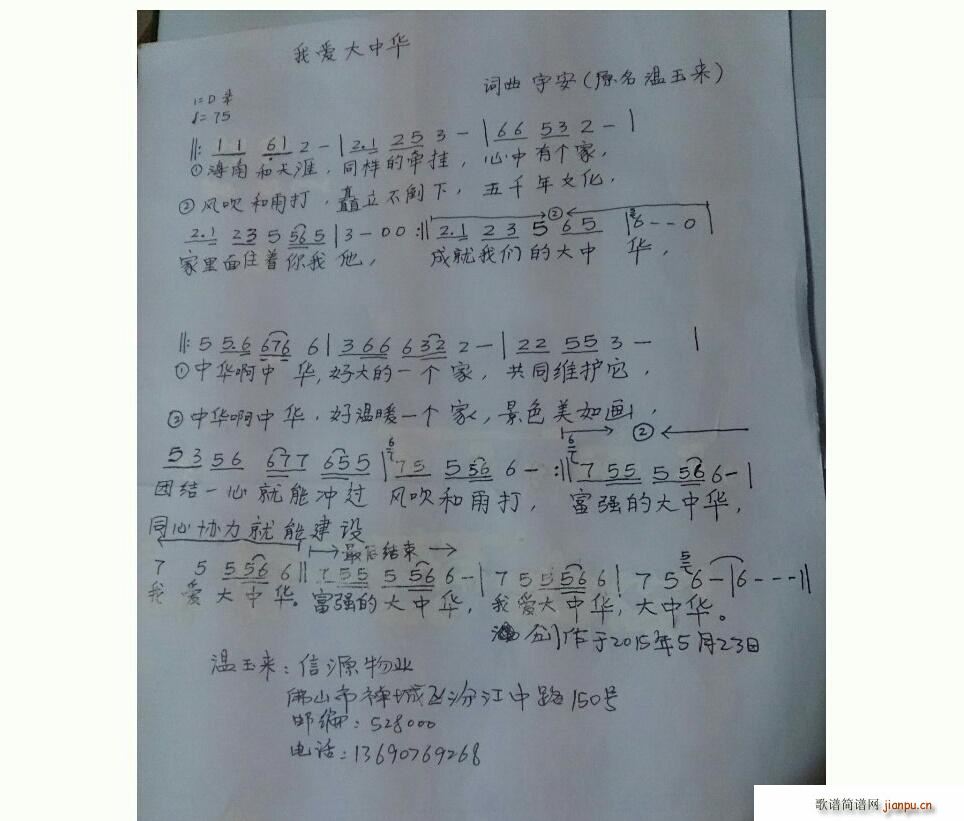 我爱大中华
词曲 宇安(原名温玉来)
1=D 4/4
♩=75
‖: 1 1 6 1 2 – | 2.1 2 5 3 – | 6 6 5 3 2 – |
①海南和天涯,同样的牵挂,心中有个家,
②风吹和雨打,矗立不倒下,五千年文化,
2.1 2 3 5 5 6 5 | 3 – 0 0 :‖ 2.1 2 3 5 6 5 | 6 – – 0 |
②
家里面住着你我他, 成就我们的大中 华,
‖: 5 5.6 6 7 6 6 | 3 6 6 6 3 2 2 – | 2 2 5 5 3 – |
①中华啊中 华,好大的一个家,共同维护它,
②中华啊中华,好温暖一个家,景色美如画,
②
5 3 5 6 6 7 7 6 5 5 | 7 5 5 5 6 6 – :‖ 7 5 5 5 5 6 6 – |
团结一心就能冲过 风吹和雨打, 富强的大中华,
同心协力就能建设
最后结束
7 5 5 5 6 6 ‖ 7 5 5 5 5 6 6 – | 7 5 5 5 6 6 | 7 5 6 – | 6 – – – ‖
我爱大中华。富强的大中华,我爱大中华,大中华。
创作于2015年5月23日
温玉来:信源物业
佛山市禅城区汾江中路150号
邮编:528000
电话:13690769268
歌谱简谱网 jianpu.cn